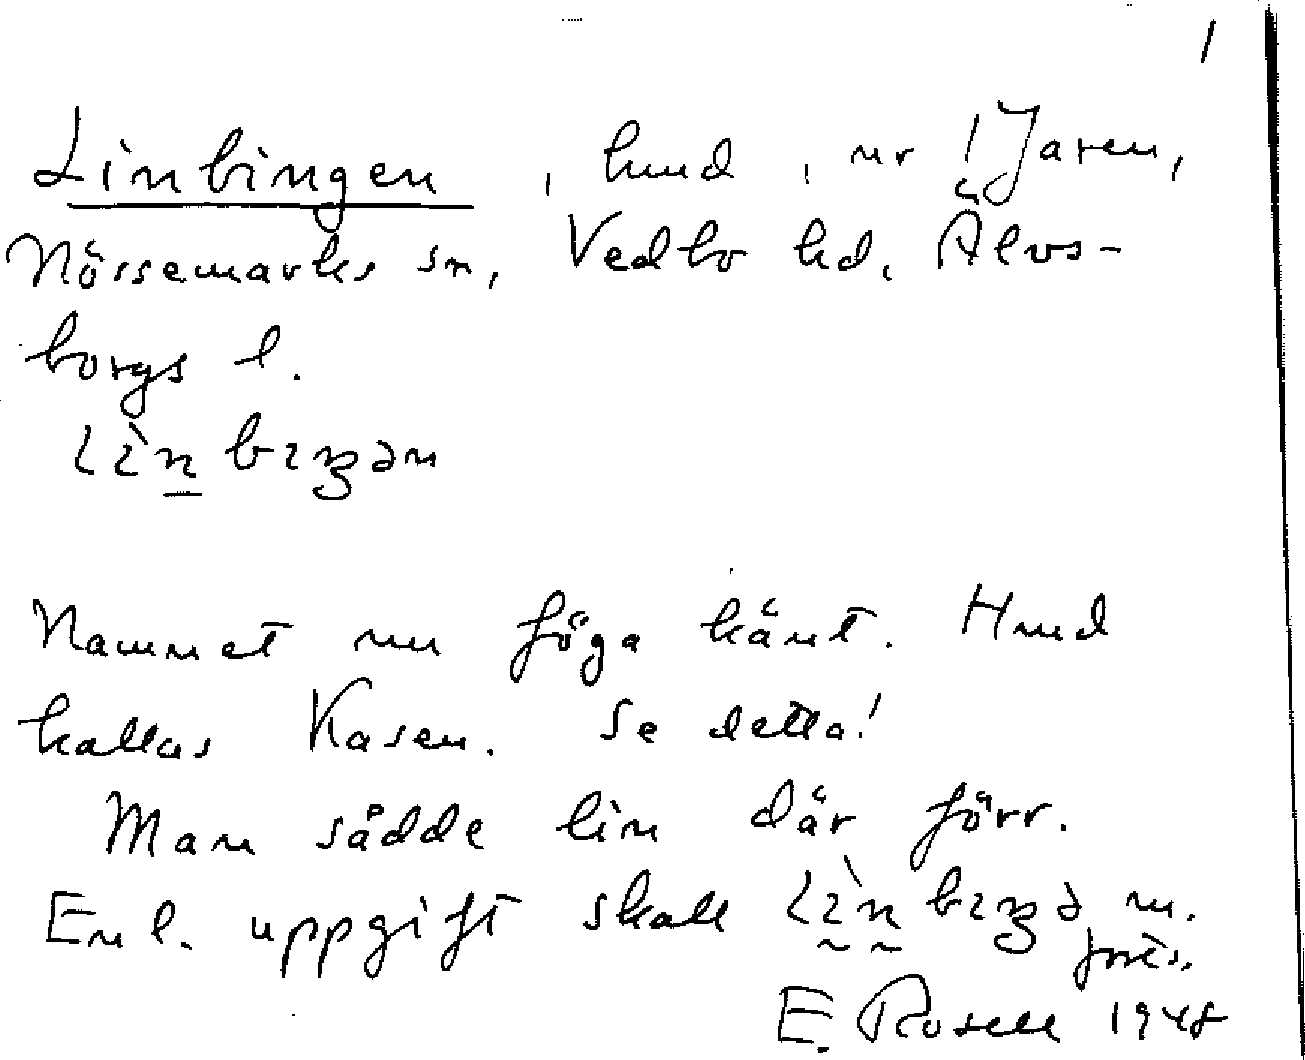 1
Linbingen, lund, nr 1 Jaren,
Nössemarks sn, Vedbo hd, Älvs-
borgs l.
Namnet nu föga känt. Hud
kallas Kasen. Se detta!
Man sådde lin där förr.
Enl. uppgift skall m.
E. Rosell 1948